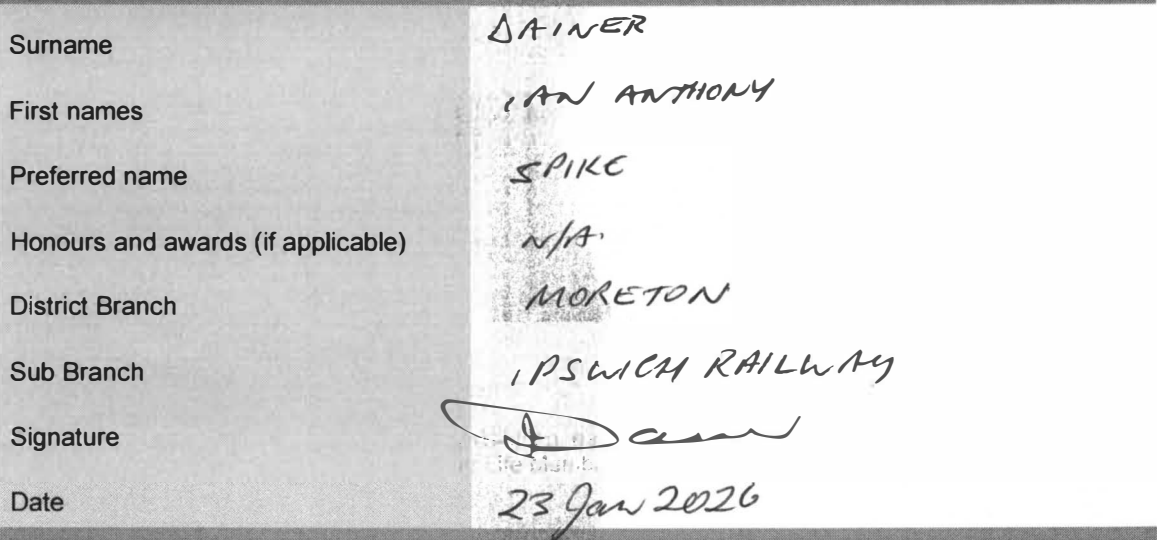 Surname DAINER
First names IAN ANTHONY
Preferred name SPIKE
Honours and awards (if applicable) N/A.
District Branch MORETON
Sub Branch IPSWICH RAILWAY
Signature
Date 23 Jan 2026